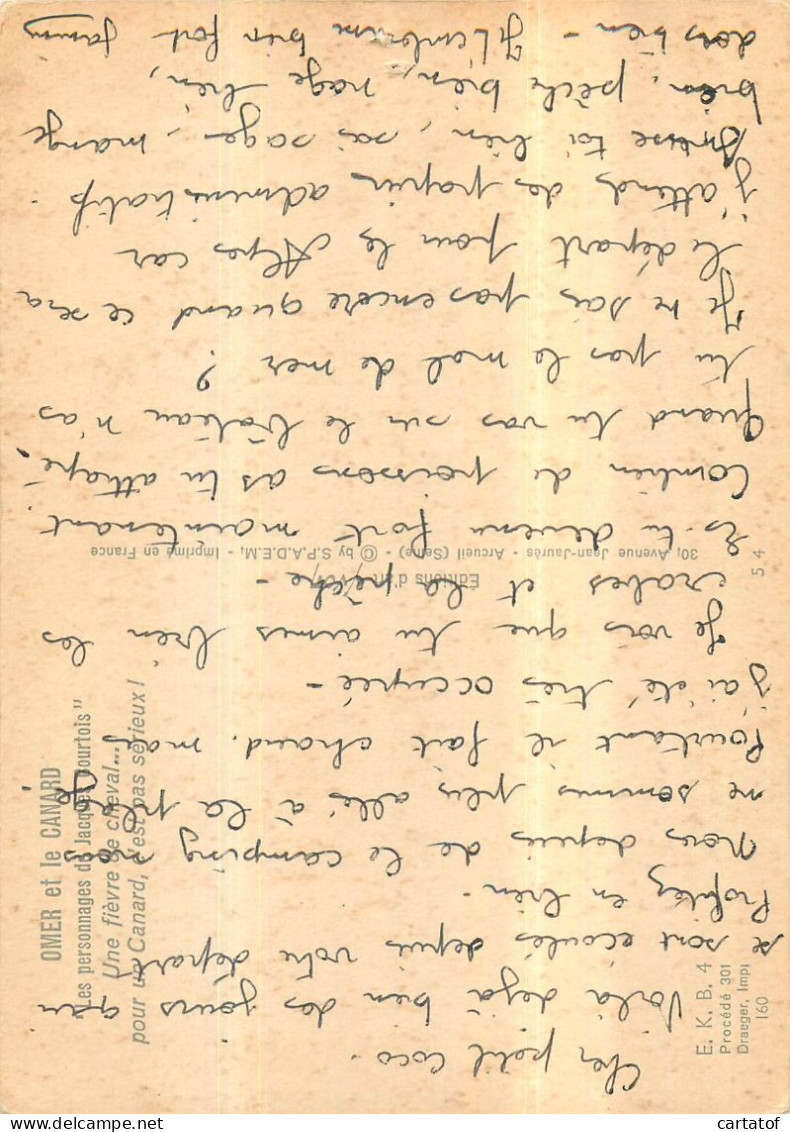 Cher petit coco.
Voilà dejà bien des jours qui
se sont écoulés depuis votre départ
Profitez en bien.
Nous depuis de le camping nous
ne sommes plus allé à la plage
Pourtant il fait chaud. mais je
j'ai été très occupée -
Je vois que tu aimes bien les
crabes et la pêche -
Es-tu devenu fort maintenant.
Combien de poissons as tu attrapé?
Quand tu vas sur le bateau n'as
tu pas le mal de mer ?
Je ne sais pas encore quand ce sera
le départ pour les Alpes car
j'attends des papiers administratifs.
Amuse toi bien, sois sage, mange
bien, pêche bien, nage bien,
dors bien - Je t'embrasse bien fort
OMER et le CANARD
"Les personnages de Jacques Bourtois"
Une fièvre de cheval...
pour un Canard, c'est pas sérieux !
Editions d'art
30, Avenue Jean-Jaurès - Arcueil (Seine) - © by S.P.A.D.E.M. - Imprimé en France
54
E. K. B. 4
Procédé 301
Draeger, Impr
160
cartatof